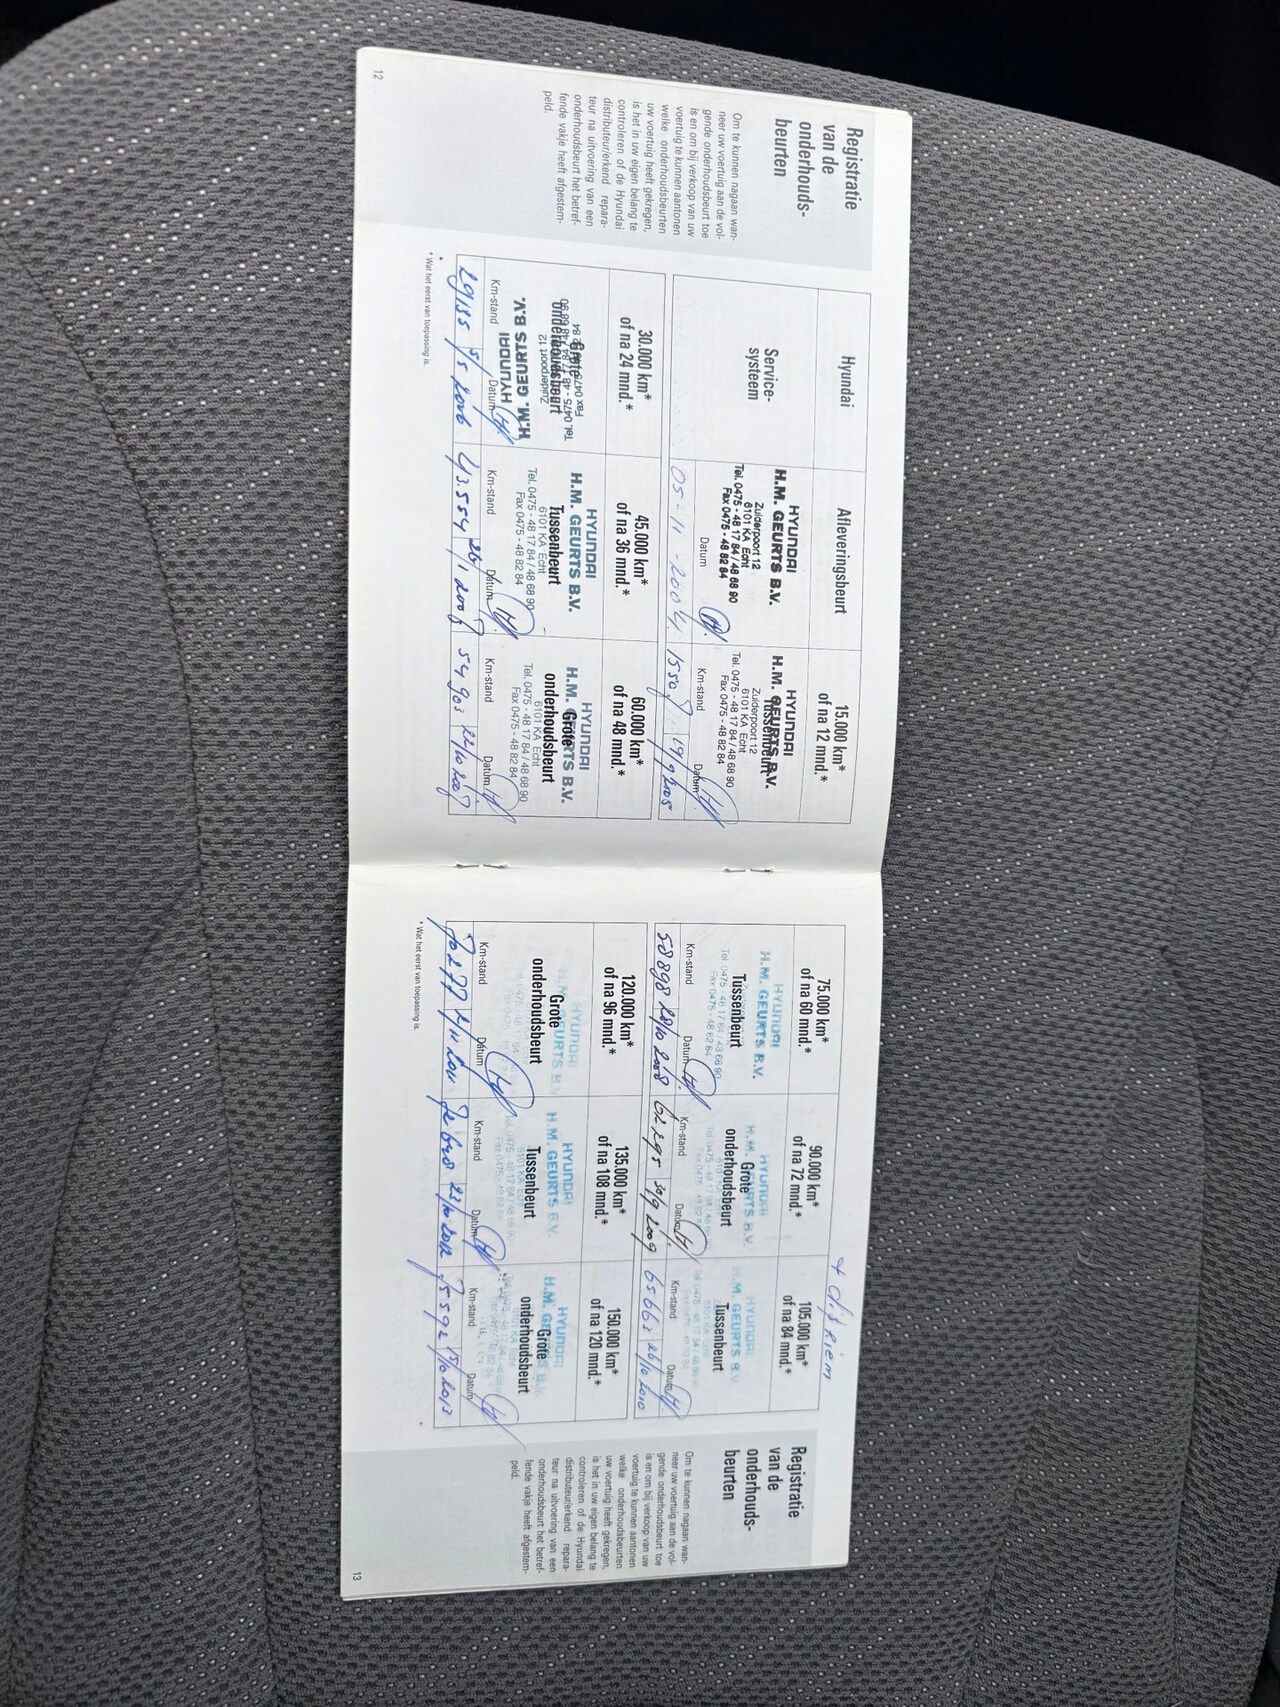 Registratie
van de
onderhouds-
beurten
Om te kunnen nagaan wan-
neer uw voertuig aan de vol-
gende onderhoudsbeurt toe
is en om bij verkoop van uw
voertuig te kunnen aantonen
welke onderhoudsbeurten
uw voertuig heeft gekregen,
is het in uw eigen belang te
controleren of de Hyundai
distributeur/erkend repara-
teur na uitvoering van een
onderhoudsbeurt het betref-
fende vakje heeft afgestem-
peld.
12
Hyundai
Service-
systeem
Afleveringsbeurt
HYUNDAI
H.M. GEURTS B.V.
Zuiderpoort 12
6101 KA Echt
Tel. 0475 - 48 17 84 / 48 68 90
Fax 0475 - 48 82 84
Datum
05-11-2004
15.000 km*
of na 12 mnd.*
HYUNDAI
H.M. GEURTS B.V.
Tussenbeurt
Zuiderpoort 12
6101 KA Echt
Tel. 0475 - 48 17 84 / 48 68 90
Fax 0475 - 48 82 84
Km-stand
Datum
15507
19/9 2005
30.000 km*
of na 24 mnd.*
Grote
onderhoudsbeurt
HYUNDAI
H.M. GEURTS B.V.
Zuiderpoort 12
Km-stand
Datum
29185
5/5 2006
45.000 km*
of na 36 mnd.*
HYUNDAI
H.M. GEURTS B.V.
Tussenbeurt
6101 KA Echt
Tel. 0475 - 48 17 84 / 48 68 90
Fax 0475 - 48 82 84
Km-stand
Datum
43.554
26/1 2007
60.000 km*
of na 48 mnd.*
HYUNDAI
H.M. GEURTS B.V.
Grote
onderhoudsbeurt
6101 KA Echt
Tel. 0475 - 48 17 84 / 48 68 90
Fax 0475 - 48 82 84
Km-stand
Datum
54903
22/10 2007
* Wat het eerst van toepassing is.
75.000 km*
of na 60 mnd.*
HYUNDAI
H.M. GEURTS B.V.
Tussenbeurt
Km-stand
Datum
58898
28/10 2008
90.000 km*
of na 72 mnd.*
HYUNDAI
Grote
onderhoudsbeurt
Km-stand
Datum
62295
30/9 2009
105.000 km*
of na 84 mnd.*
HYUNDAI
H.M. GEURTS B.V.
Tussenbeurt
Km-stand
Datum
65663
26/10 2010
120.000 km*
of na 96 mnd.*
HYUNDAI
H.M. GEURTS B.V.
Grote
onderhoudsbeurt
Km-stand
Datum
70277
2/11 2011
135.000 km*
of na 108 mnd.*
HYUNDAI
H.M. GEURTS B.V.
Tussenbeurt
Km-stand
Datum
23/10 2012
150.000 km*
of na 120 mnd.*
HYUNDAI
Grote
onderhoudsbeurt
Km-stand
Datum
75592
15/10 2013
* Wat het eerst van toepassing is.
Registratie
van de
onderhouds-
beurten
Om te kunnen nagaan wan-
neer uw voertuig aan de vol-
gende onderhoudsbeurt toe
is en om bij verkoop van uw
voertuig te kunnen aantonen
welke onderhoudsbeurten
uw voertuig heeft gekregen,
is het in uw eigen belang te
controleren of de Hyundai
distributeur/erkend repara-
teur na uitvoering van een
onderhoudsbeurt het betref-
fende vakje heeft afgestem-
peld.
13